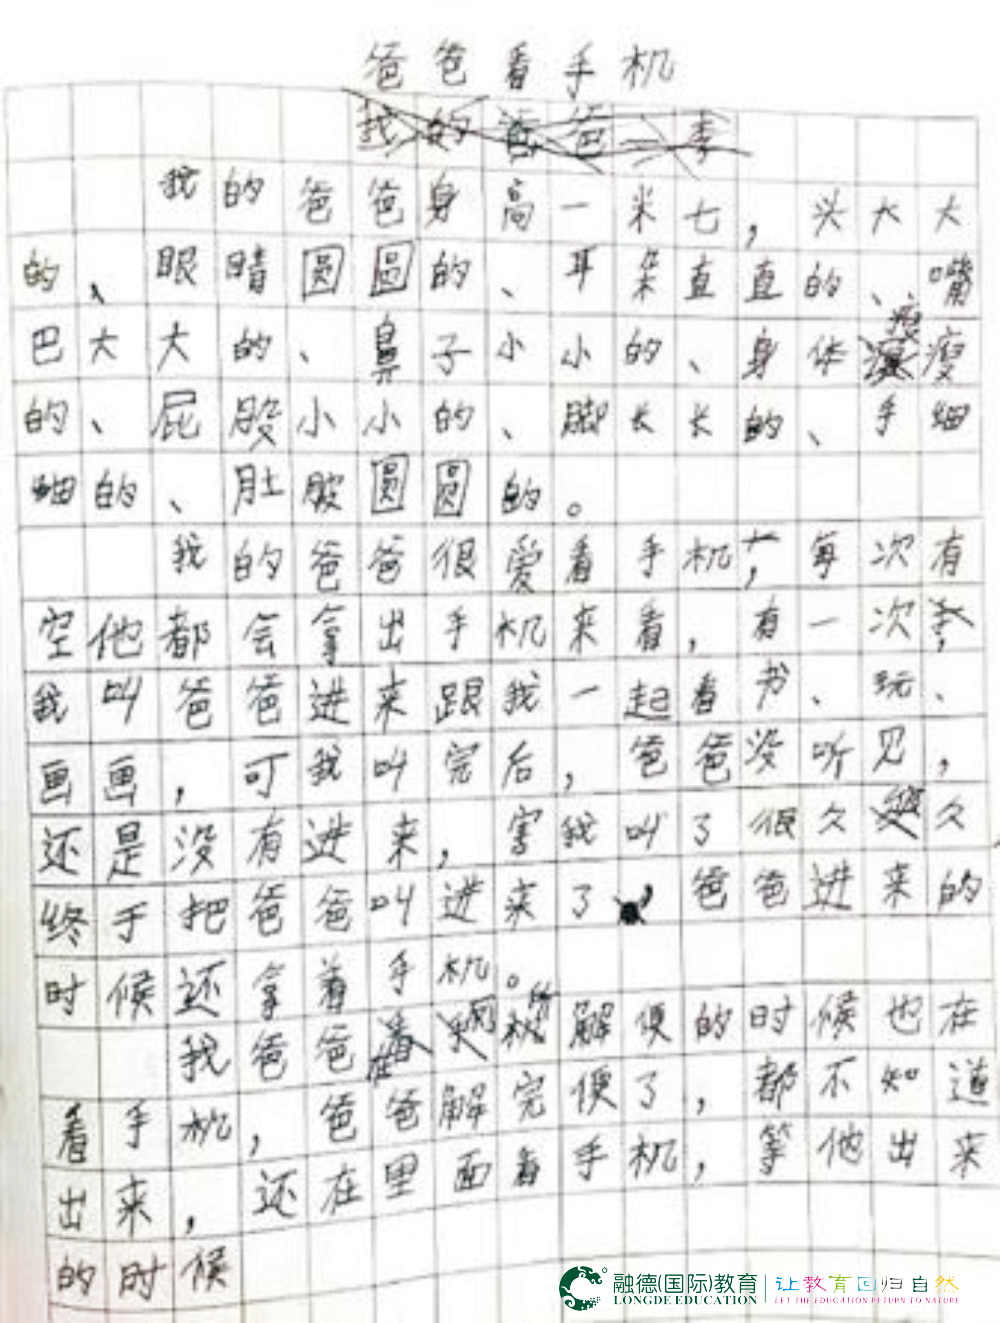 爸爸看手机
我的爸爸一李
我的爸爸身高一米七，头大大
的、眼睛圆圆的、耳朵直直的、嘴
巴大大的、鼻子小小的、身体瘦瘦
的、屁股小小的、脚长长的、手细
细的、肚皮圆圆的。
我的爸爸很爱看手机，每次有
空他都会拿出手机来看，有一次，
我叫爸爸进来跟我一起看书、玩、
画画，可我叫完后，爸爸没听见，
还是没有进来，害我叫了很久久
终于把爸爸叫进来了，爸爸进来的
时候还拿着手机。
我爸爸在厕所解便的时候也在
看手机，爸爸解完便了，都不知道
出来，还在里面看手机，等他出来
的时候
融德(国际)教育 让教育回归自然
LONGDE EDUCATION LET THE EDUCATION RETURN TO NATURE